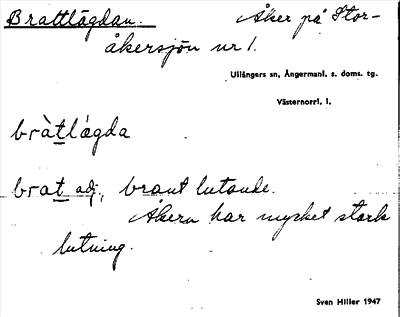 Brattlägdan. Åker på Stor-
åkersjön nr 1.
Ullångers sn, Ångermanl. s. doms. tg.
Västernorrl. l.
bràtlágda
brat adj., brant lutande.
Åkern har mycket stark
lutning.
Sven Hiller 1947